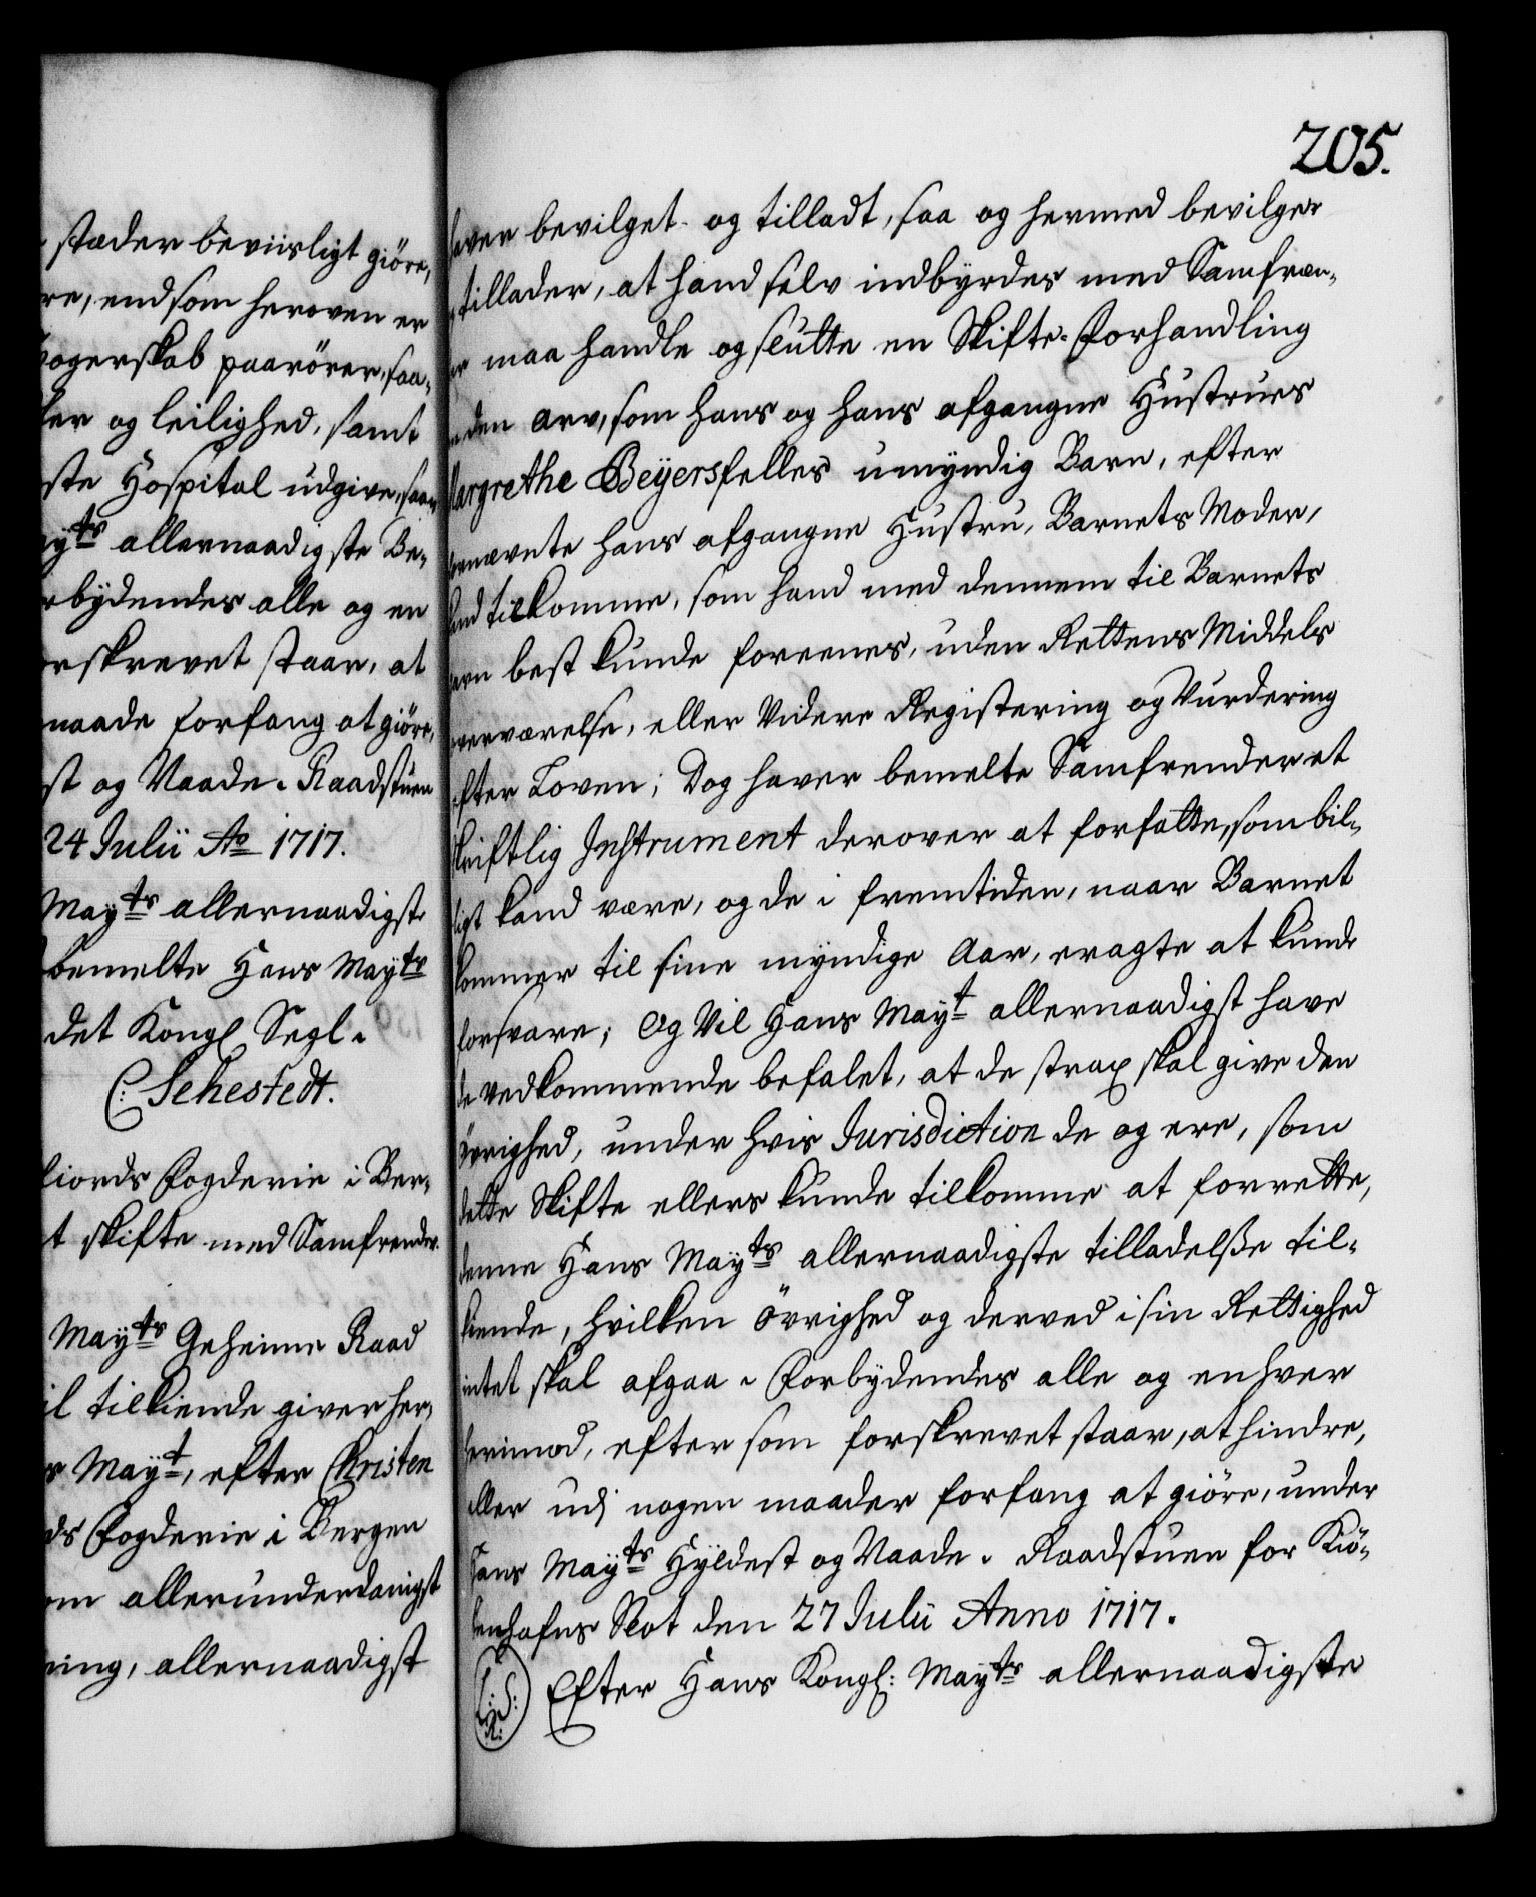 stæder beviisligt giöre,
re, end som heroven er
ogerskab paarörer, saa,
ler og leilighed, samt
ste Hospital udgive, saa
yts allernaadigste Be,
bydendes alle og en
rskrevet staar, at
maade forfang at giöre,
st og Naade. Raadstuen
24 Julii Ao 1717.
Mayts allernaadigste
bemelte Hans Mayts
det Kongl Segl.
C: Sehestedt.
fiords Fogderie i Ber,
t skifte med Samfrender.
Mayts Geheime Raad
il tilkiende giver her,
s Mayt, efter Christen
ds Fogderie i Bergen
om allerunderdanigst
ning, allernaadigst
205.
haver bevilget og tilladt, saa og hermed bevilger
tillader, at hand selv indbyrdes med Samfræn,
er maa handle og slutte en Skifte-Forhandling
den Arv, som hans og hans afgangne Hustrues
Margrethe Beÿersfelles umyndig Barn, efter
bemævnte hans afgangne Hustru, Barnets Moder,
kand tilkomme, som hand med dennem til Barnets
Gavn best kunde foreenes, uden Rettens Middels
overværelse, eller Videre Registering og Vurdering
efter Loven; Dog haver bemelte Samfrender et
skriftlig Instrument derover at forfatte, som bil,
ligt kand være, og de i fremtiden, naar Barnet
kommer til sine myndige Aar, eragte at kunde
forsvare; Og Vil Hans Mayt allernaadigst have
de Vedkommende befalet, at de strax skal give den
Övrighed, under hvis Jurisdiction de og ere, som
dette Skifte ellers kunde tilkomme at forrette,
denne Hans Mayts allernaadigste tilladelsse til,
kiende, hvilken Övrighed og derved i sin Rettighed
intet skal afgaa. Forbydendes alle og enhver
herimod, efter som forskrevet staar, at hindre,
eller udj nogen maader forfang at giöre, under
Hans Mayts Hyldest og Naade. Raadstuen for Kiö,
benhafns Slot den 27 Julii Anno 1717.
L: S:
R:
Efter Hans Kongl: Mayts allernaadigste